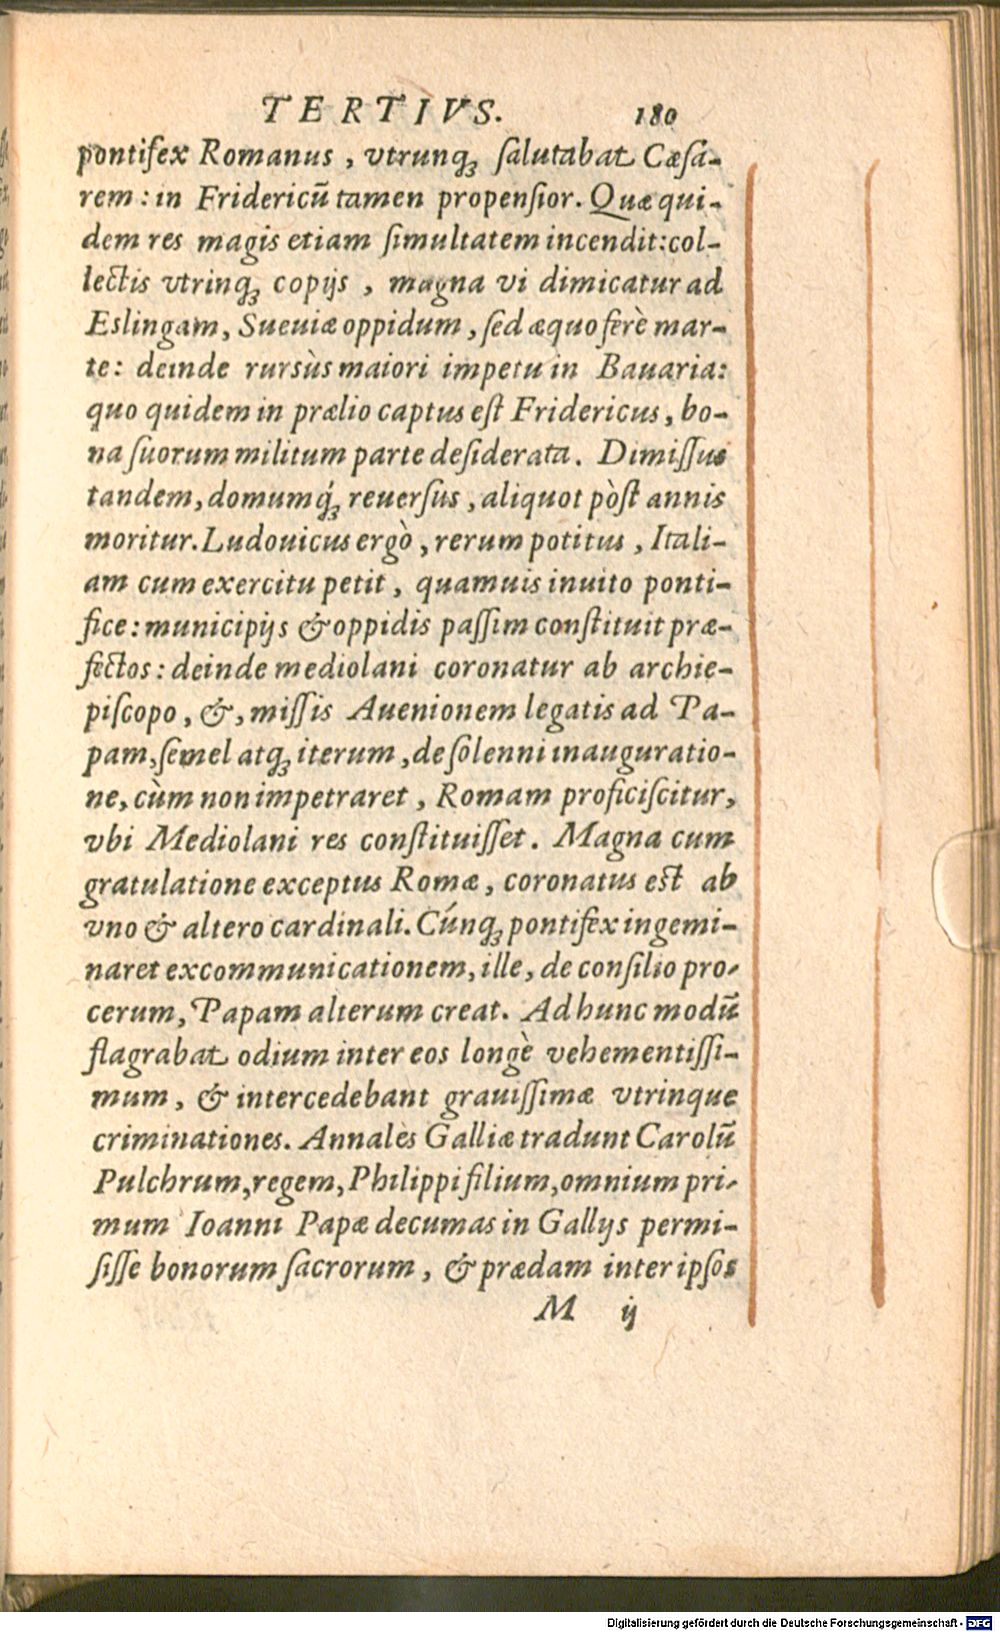 TERTIVS. 180
pontifex Romanus, vtrunq; ſalutabat Cæſa-
rem: in Fridericũ tamen propenſior. Quæ qui-
dem res magis etiam ſimultatem incendit: col-
lectis vtrinq; copijs, magna vi dimicatur ad
Eslingam, Sueuiæ oppidum, ſed æquo ferè mar-
te: deinde rursùs maiori impetu in Bauaria:
quo quidem in prælio captus eſt Fridericus, bo-
na ſuorum militum parte deſiderata. Dimiſſus
tandem, domumq́; reuerſus, aliquot pòſt annis
moritur. Ludouicus ergò, rerum potitus, Itali-
am cum exercitu petit, quamuis inuito ponti-
fice: municipijs & oppidis paſſim conſtituit præ-
fectos: deinde mediolani coronatur ab archie-
piſcopo, &, miſſis Auenionem legatis ad Pa-
pam, ſemel atq; iterum, de ſolenni inauguratio-
ne, cùm non impetraret, Romam proficiſcitur,
vbi Mediolani res conſtituiſſet. Magna cum
gratulatione exceptus Romæ, coronatus eſt ab
vno & altero cardinali. Cúnq; pontifex ingemi-
naret excommunicationem, ille, de conſilio pro-
cerum, Papam alterum creat. Ad hunc modũ
flagrabat odium inter eos longè vehementiſſi-
mum, & intercedebant grauiſſimæ vtrinque
criminationes. Annales Galliæ tradunt Carolũ
Pulchrum, regem, Philippi filium, omnium pri-
mum Ioanni Papæ decumas in Gallijs permi-
ſiſſe bonorum ſacrorum, & prædam inter ipſos
M ij
Digitalisierung gefördert durch die Deutsche Forschungsgemeinschaft - DFG